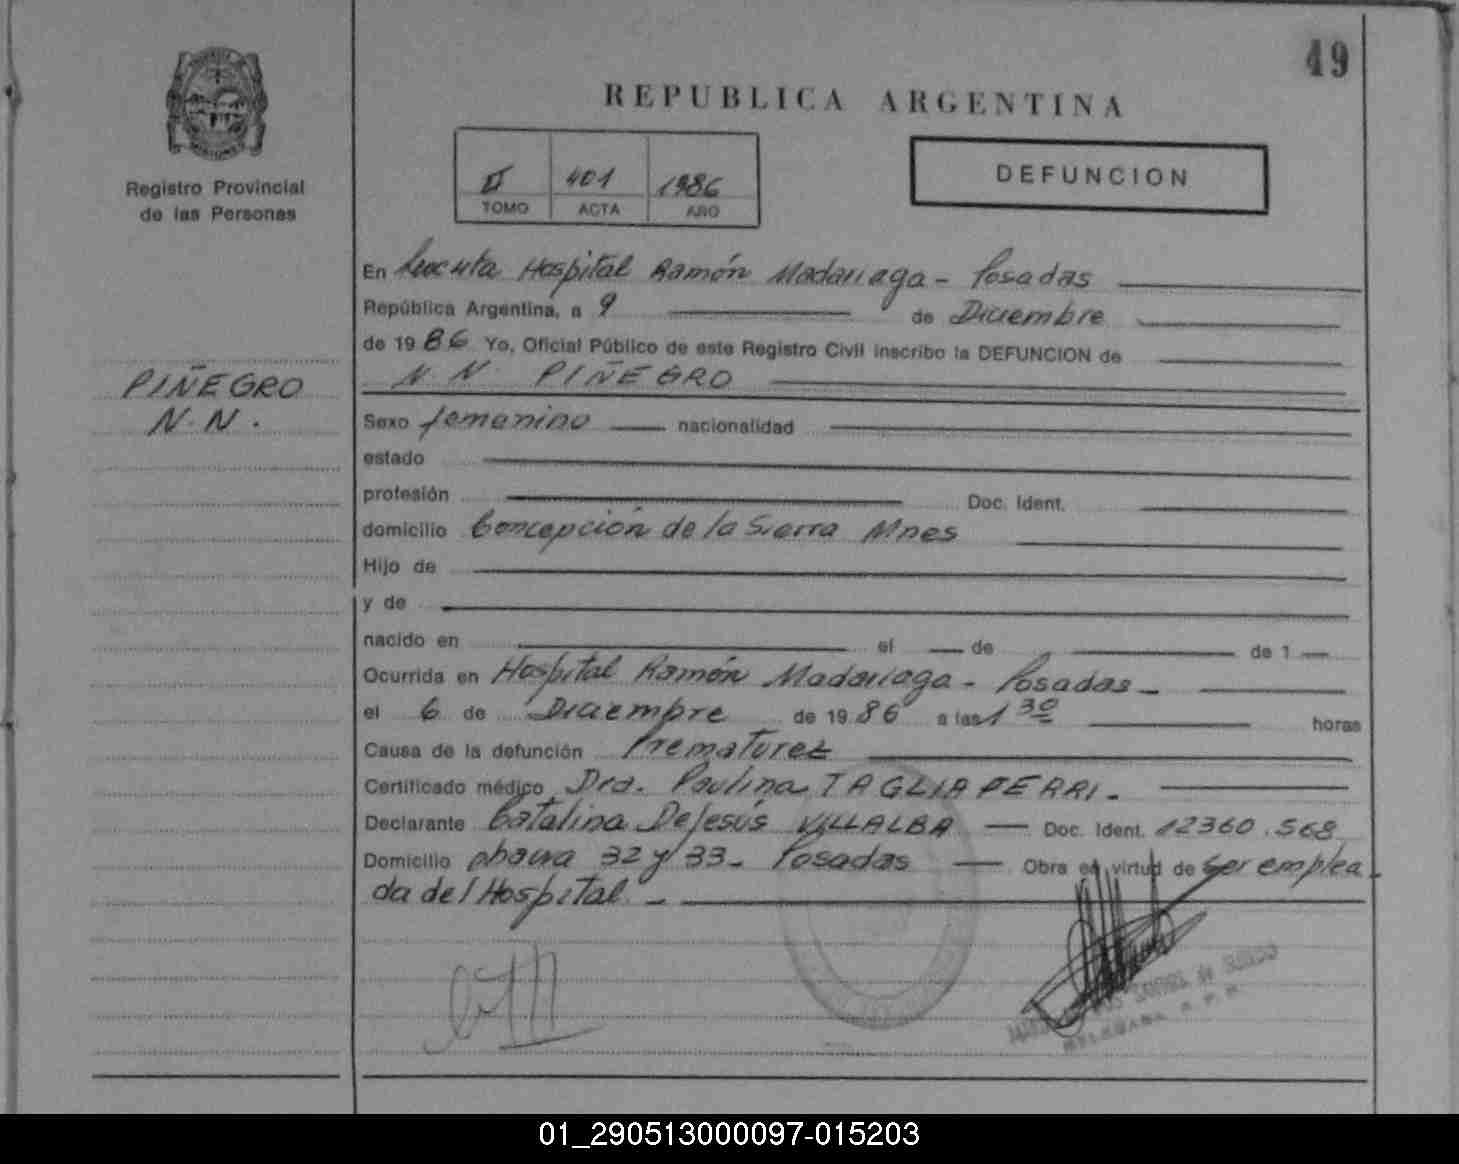 49
REPUBLICA ARGENTINA
Registro Provincial
de las Personas
II 401 1986
TOMO ACTA AÑO
DEFUNCION
En Hospital Ramón Madariaga - Posadas
República Argentina, a 9 de Diciembre
de 1986 Yo, Oficial Público de este Registro Civil inscribo la DEFUNCION de
N. N. PIÑEGRO
PIÑEGRO
N. N.
Sexo femenino nacionalidad
estado
profesión Doc. Ident.
domicilio Concepción de la Sierra Mnes
Hijo de
y de
nacido en el de de 1
Ocurrida en Hospital Ramón Madariaga - Posadas -
el 6 de Diciembre de 1986 a las 1 30 horas
Causa de la defunción Prematurez
Certificado médico Dra. Paulina TAGLIAPERRI.
Declarante Catalina DeJesús VILLALBA Doc. Ident. 12360.568
Domicilio chacra 32 y 33 - Posadas Obra en virtud de ser emplea
da del Hospital. -
01_290513000097-015203